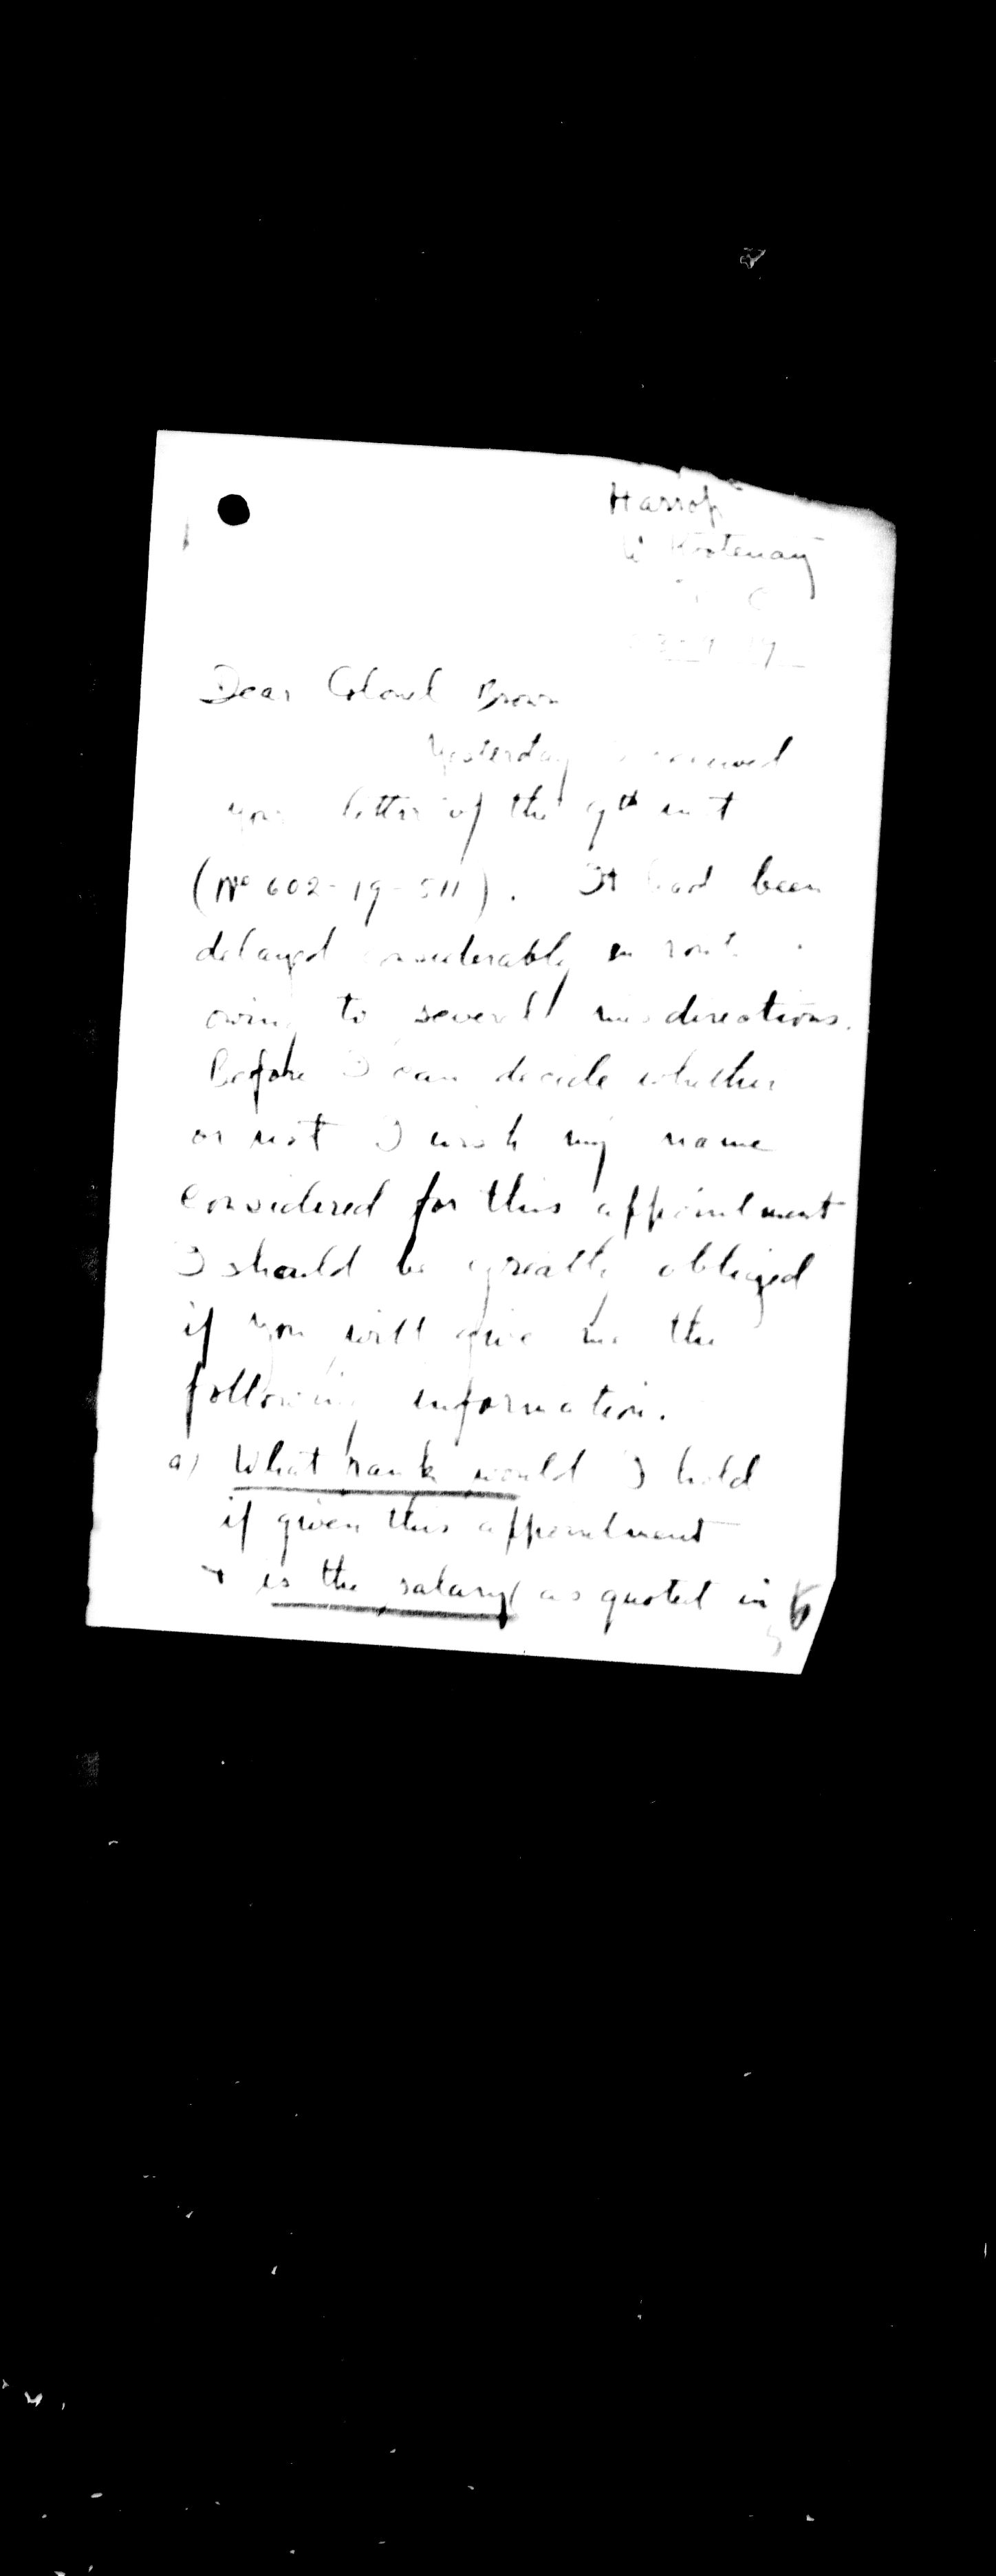 Harrop
W Kootenay
C
Dear Colonel Brown
Yesterday I received
your letter of the 9th inst
(No 602-19-511). It had been
delayed considerably en route
owing to several misdirections.
Before I can decide whether
or not I wish my name
considered for this appointment
I should be greatly obliged
if you will give me the
following information.
a) What rank would I hold
if given this appointment
+ is the salary as quoted in